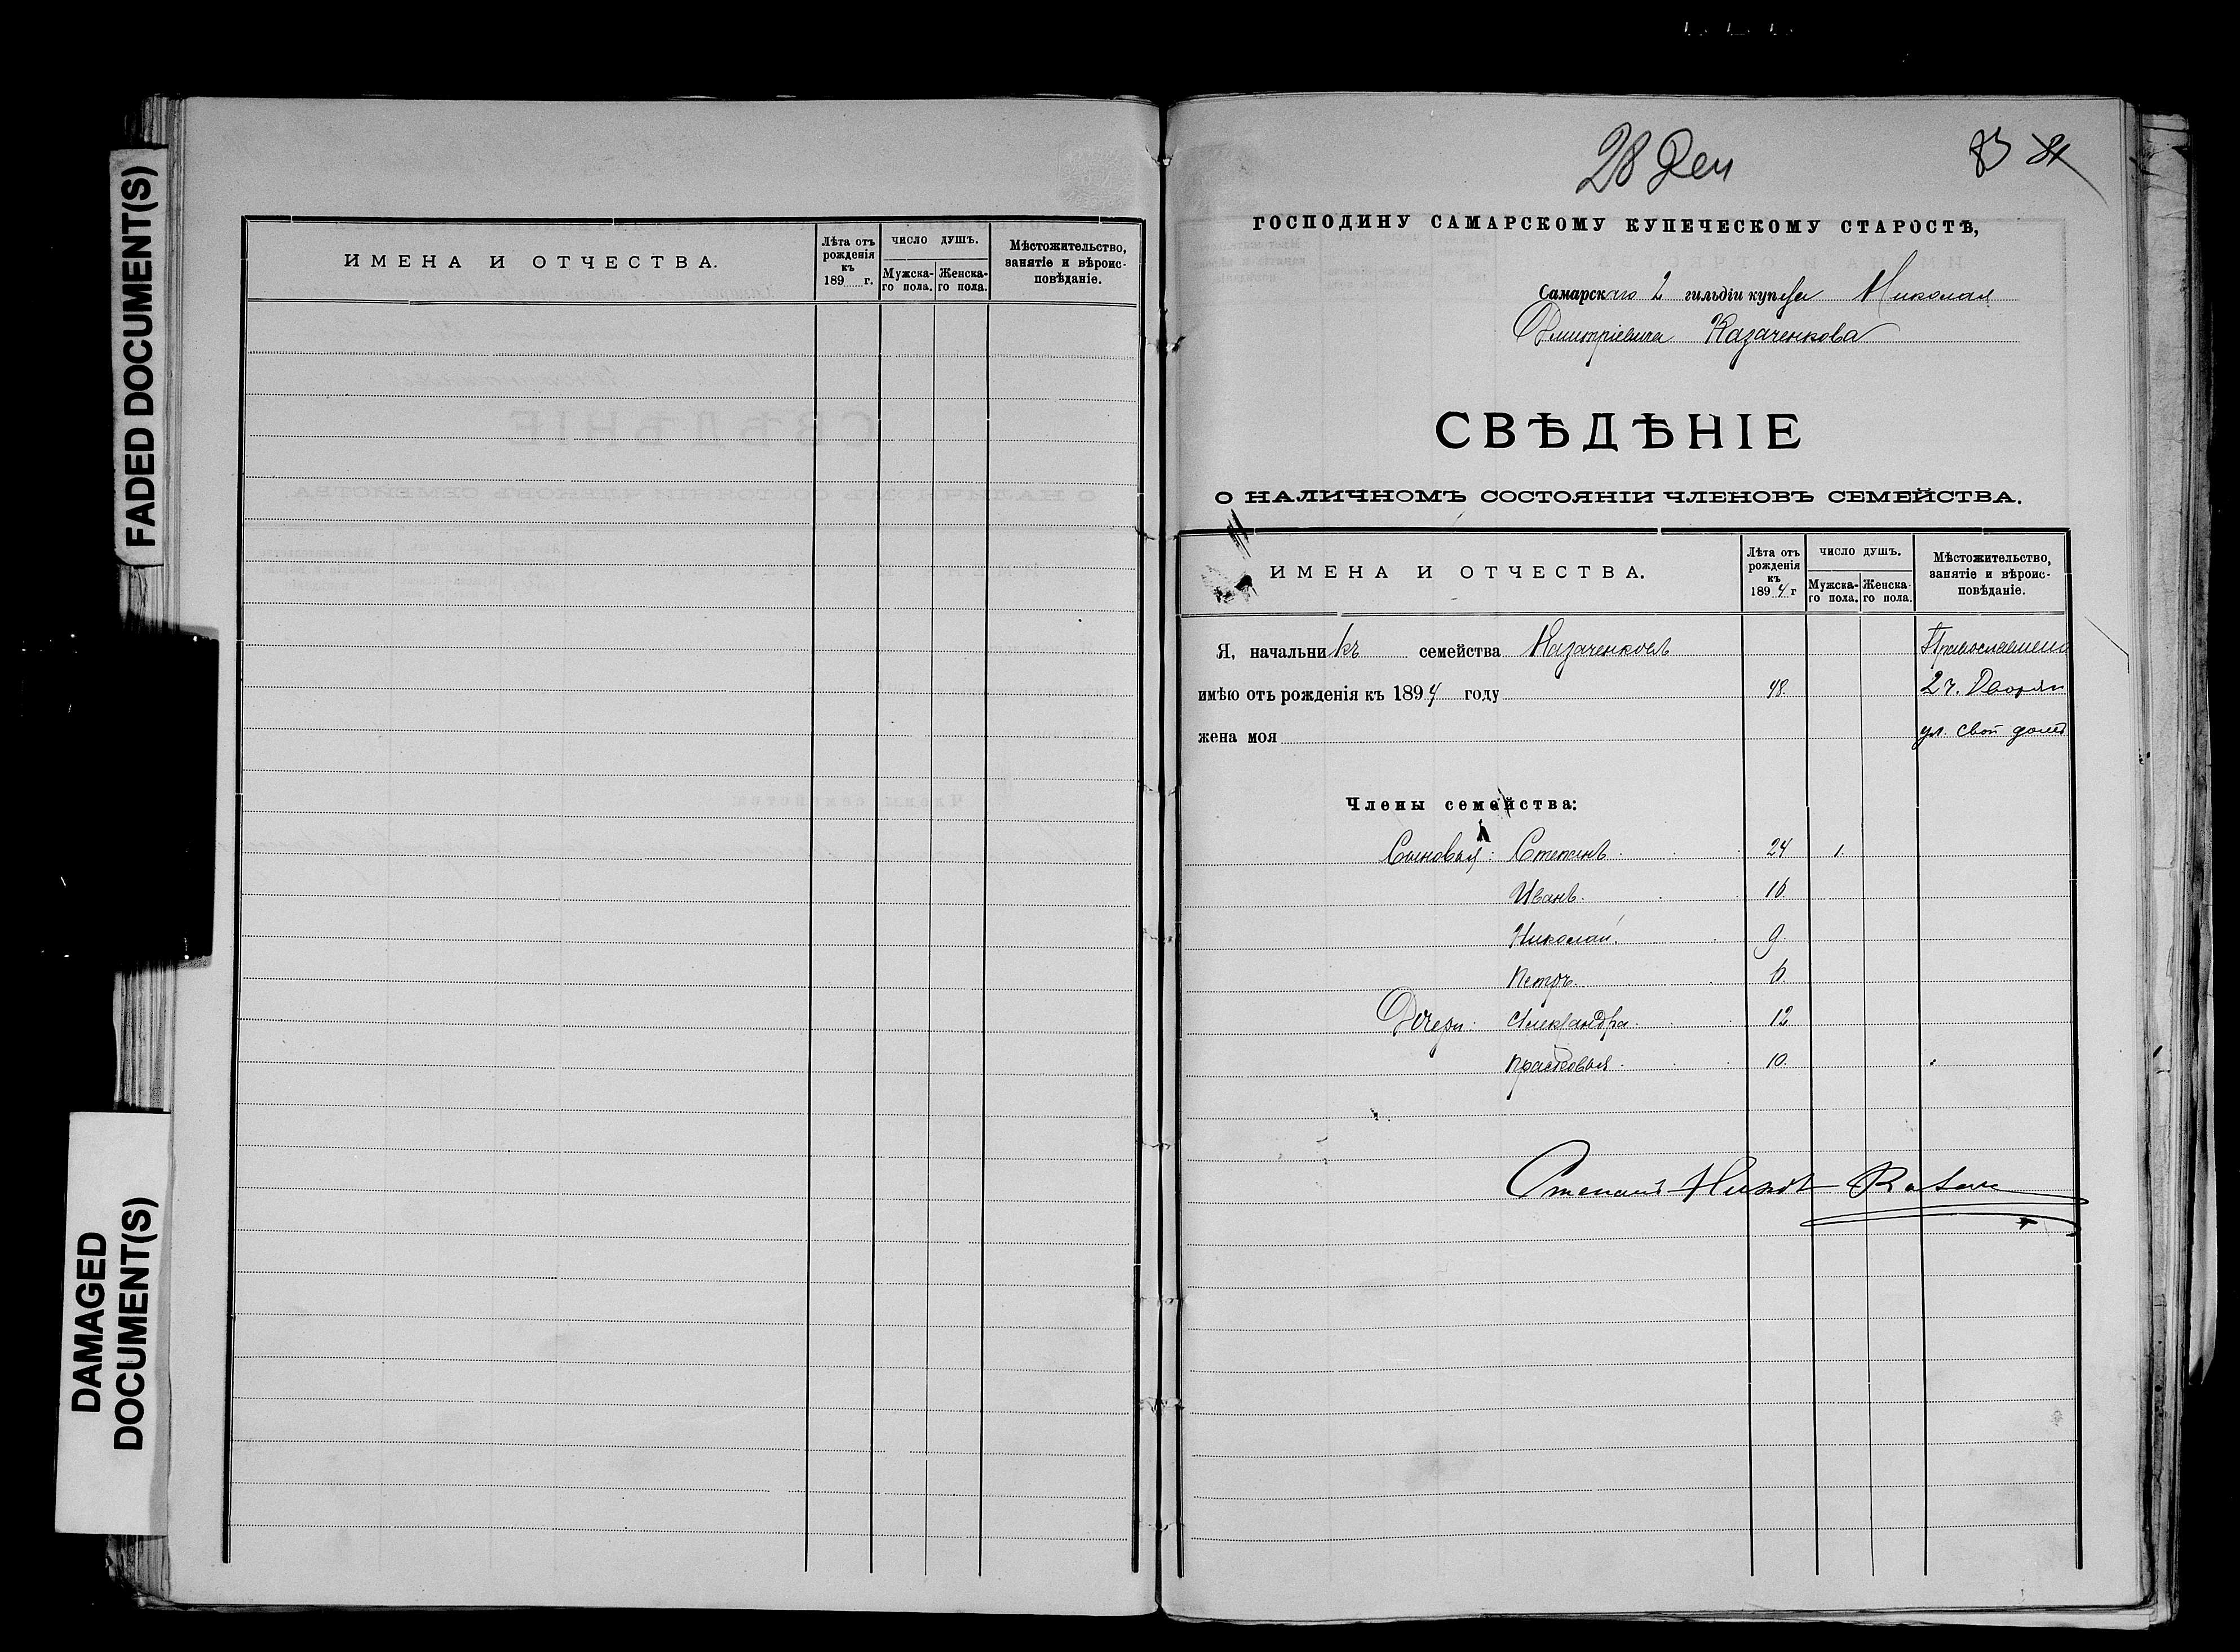 FADED DOCUMENT(S)
DAMAGED
DOCUMENT(S)
ИМЕНА И ОТЧЕСТВА.
Лѣта отъ рожденія къ 189 г.
ЧИСЛО ДУШЪ.
Мужска-го пола.
Женска-го пола.
Мѣстожительство, занятіе и вѣроис-повѣданіе.
28 Дек
83 84
ГОСПОДИНУ САМАРСКОМУ КУПЕЧЕСКОМУ СТАРОСТѢ,
Самарскаго 2 гильдіи купца Николая
Дмитріевича Казаченкова
СВѢДѢНІЕ
О НАЛИЧНОМЪ СОСТОЯНІИ ЧЛЕНОВЪ СЕМЕЙСТВА.
ИМЕНА И ОТЧЕСТВА.
Лѣта отъ рожденія къ 1894 г
ЧИСЛО ДУШЪ.
Мужска-го пола.
Женска-го пола.
Мѣстожительство, занятіе и вѣроис-повѣданіе.
Я, начальникъ семейства Казаченковъ Православнаго
имѣю отъ рожденія къ 1894 году 48. 2 ч. Дворян
жена моя ул. свой домъ
Члены семейства:
Сыновья: Степанъ. 24 1.
Иванъ. 16.
Николай. 9.
Петръ. 6.
Дочери: Александра. 12
Прасковья. 10.
Степанъ Никол Казач